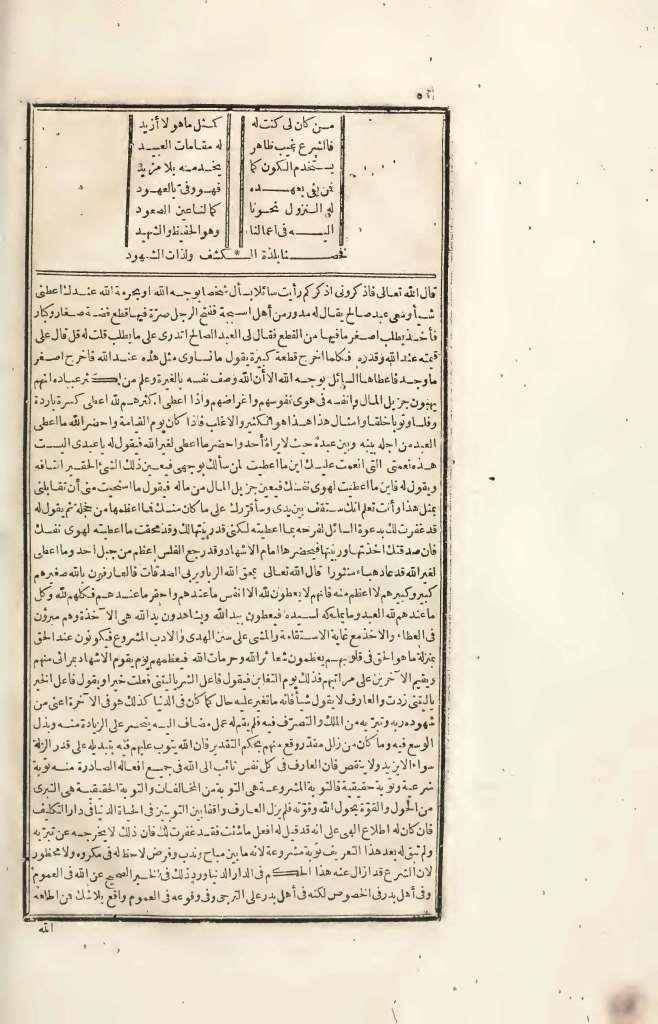 من كان لى كنت له كمثل ماهو لا أزيد
فالشرع غيب ظاهر له مقامات العبيد
يستخدم الكون كما يخدمنه بلا مزيد
فمن يفى بعهده فهو وفىّ بالعهود
له النزول نحونا كما لنا عين الصعود
اليه فى أعمالنا وهو الحفيظ والشهيد
فخصنا بلذة الكشف * ولذات الشهود
قال الله تعالى فاذكرونى أذكركم رأيت سائلا يسأل شخصا بوجه الله أو بحرمة الله عندك اعطنى
شيأ ومعى عبد صالح يقال له مدور من أهل اسبجة ففتح الرجل صرّة فيها قطع فضة صغار وكبار
فأخذ يطلب أصغر ما فيها من القطع فقال لى العبد الصالح أتدرى على ما يطلب قلت له قل قال على
قيمته عند الله وقدره فكلما أخرج قطعة كبيرة يقول ما نساوى مثل هذه عند الله فأخرج أصغر
ما وجد فأعطاها السائل بوجه الله الا أن الله وصف نفسه بالغيرة وعلم من أكثر عباده انهم
يهبون جزيل المال وأنفسه فى هوى نفوسهم وأغراضهم واذا أعطى أكثرهم لله أعطى كسرة باردة
وفلسا وثوبا خلقا وأمثال هذا هذا هو الكثير والاغلب فاذا كان يوم القيامة وأحضر الله ما أعطى
العبد من أجله بينه وبين عبده حيث لا يراه أحد وأحضر ما أعطى لغير الله فيقول له يا عبدى أليست
هذه نعمتى التى أنعمت عليك أين ما أعطيت لمن سألك بوجهى فيعين ذلك الشئ الحقير التافه
ويقول له فأين ما أعطيت لهوى نفسك فيعين جزيل المال من ماله فيقول أما استحيت منى أن تقابلنى
بمثل هذا وأنت تعلم انك ستقف بين يدى وسأقررك على ما كان منك فما أعظمها من خجلة ثم يقول له
قد غفرت لك بدعوة السائل لفرحه بما أعطيته لكنى قد ربيتها لك وقد محقت ما أعطيته لهوى نفسك
فان صدقتك أخذتها وربيتها فيحضرها امام الاشهاد وقد رجع الفلس أعظم من جبل أحد وما أعطى
لغير الله قد عاد هباء منثورا قال الله تعالى يمحق الله الربا ويربى الصدقات فالعارفون بالله صغيرهم
كبير وكبيرهم لا أعظم منه فانهم لا يعطون لله الا أنفس ما عندهم وأحقر ما عندهم فكلهم لله وكل
ما عندهم لله العبد وما يملكه لسيده فيعطون بيد الله ويشاهدون يد الله هى الآخذة وهم مبرؤن
فى العطاء والاخذ مع غاية الاستقامة والمشى على سنن الهدى والادب المشروع فيكونون عند الحق
بمنزلة ما هو الحق فى قلوبهم يعظمون شعائر الله وحرمات الله فيعظمهم يوم يقوم الاشهاد بمرأى منهم
ويقيم الآخرين على مراتبهم فذلك يوم التغابن فيقول فاعل الشر ياليتنى فعلت خيرا ويقول فاعل الخير
ياليتنى زدت والعارف لا يقول شيأ فانه ما تغير عليه حال كما كان فى الدنيا كذلك هو فى الآخرة أعنى من
شهوده ربه وتبرّيه من الملك والتصرّف فيه فلم يقم له عمل مضاف اليه يتحسر على الزيادة منه وبذل
الوسع فيه وما كان من زلل مقدّر وقع منهم بحكم التقدير فان الله يتوب عليهم فيه بتبديله على قدر الزلة
سواء لا يزيد ولا ينقص فان العارف فى كل نفس تائب الى الله فى جميع أفعاله الصادرة منه توبة
شرعية وتوبة حقيقية فالتوبة المشروعة هى التوبة من المخالفات والتوبة الحقيقية هى التبرى
من الحول والقوّة بحول الله وقوّته فلم يزل العارف واقفا بين التوبتين فى الحياة الدنيا فى دار التكليف
فان كان له اطلاع الهى على انه قد قيل له افعل ما شئت فقد غفرت لك فان ذلك لا يخرجه عن تبرّيه
ولم تبق له بعد هذا التعريف توبة مشروعة لانه ما بين مباح وندب وفرض لا حظ له فى مكروه ولا محظور
لان الشرع قد أزال عنه هذا الحكم فى الدار الدنيا ورد ذلك فى الخبر الصحيح عن الله فى العموم
وفى أهل بدر فى الخصوص لكنه فى أهل بدر على الترجى وفى وقوعه فى العموم واقع بلا شك فمن أطلعه
الله